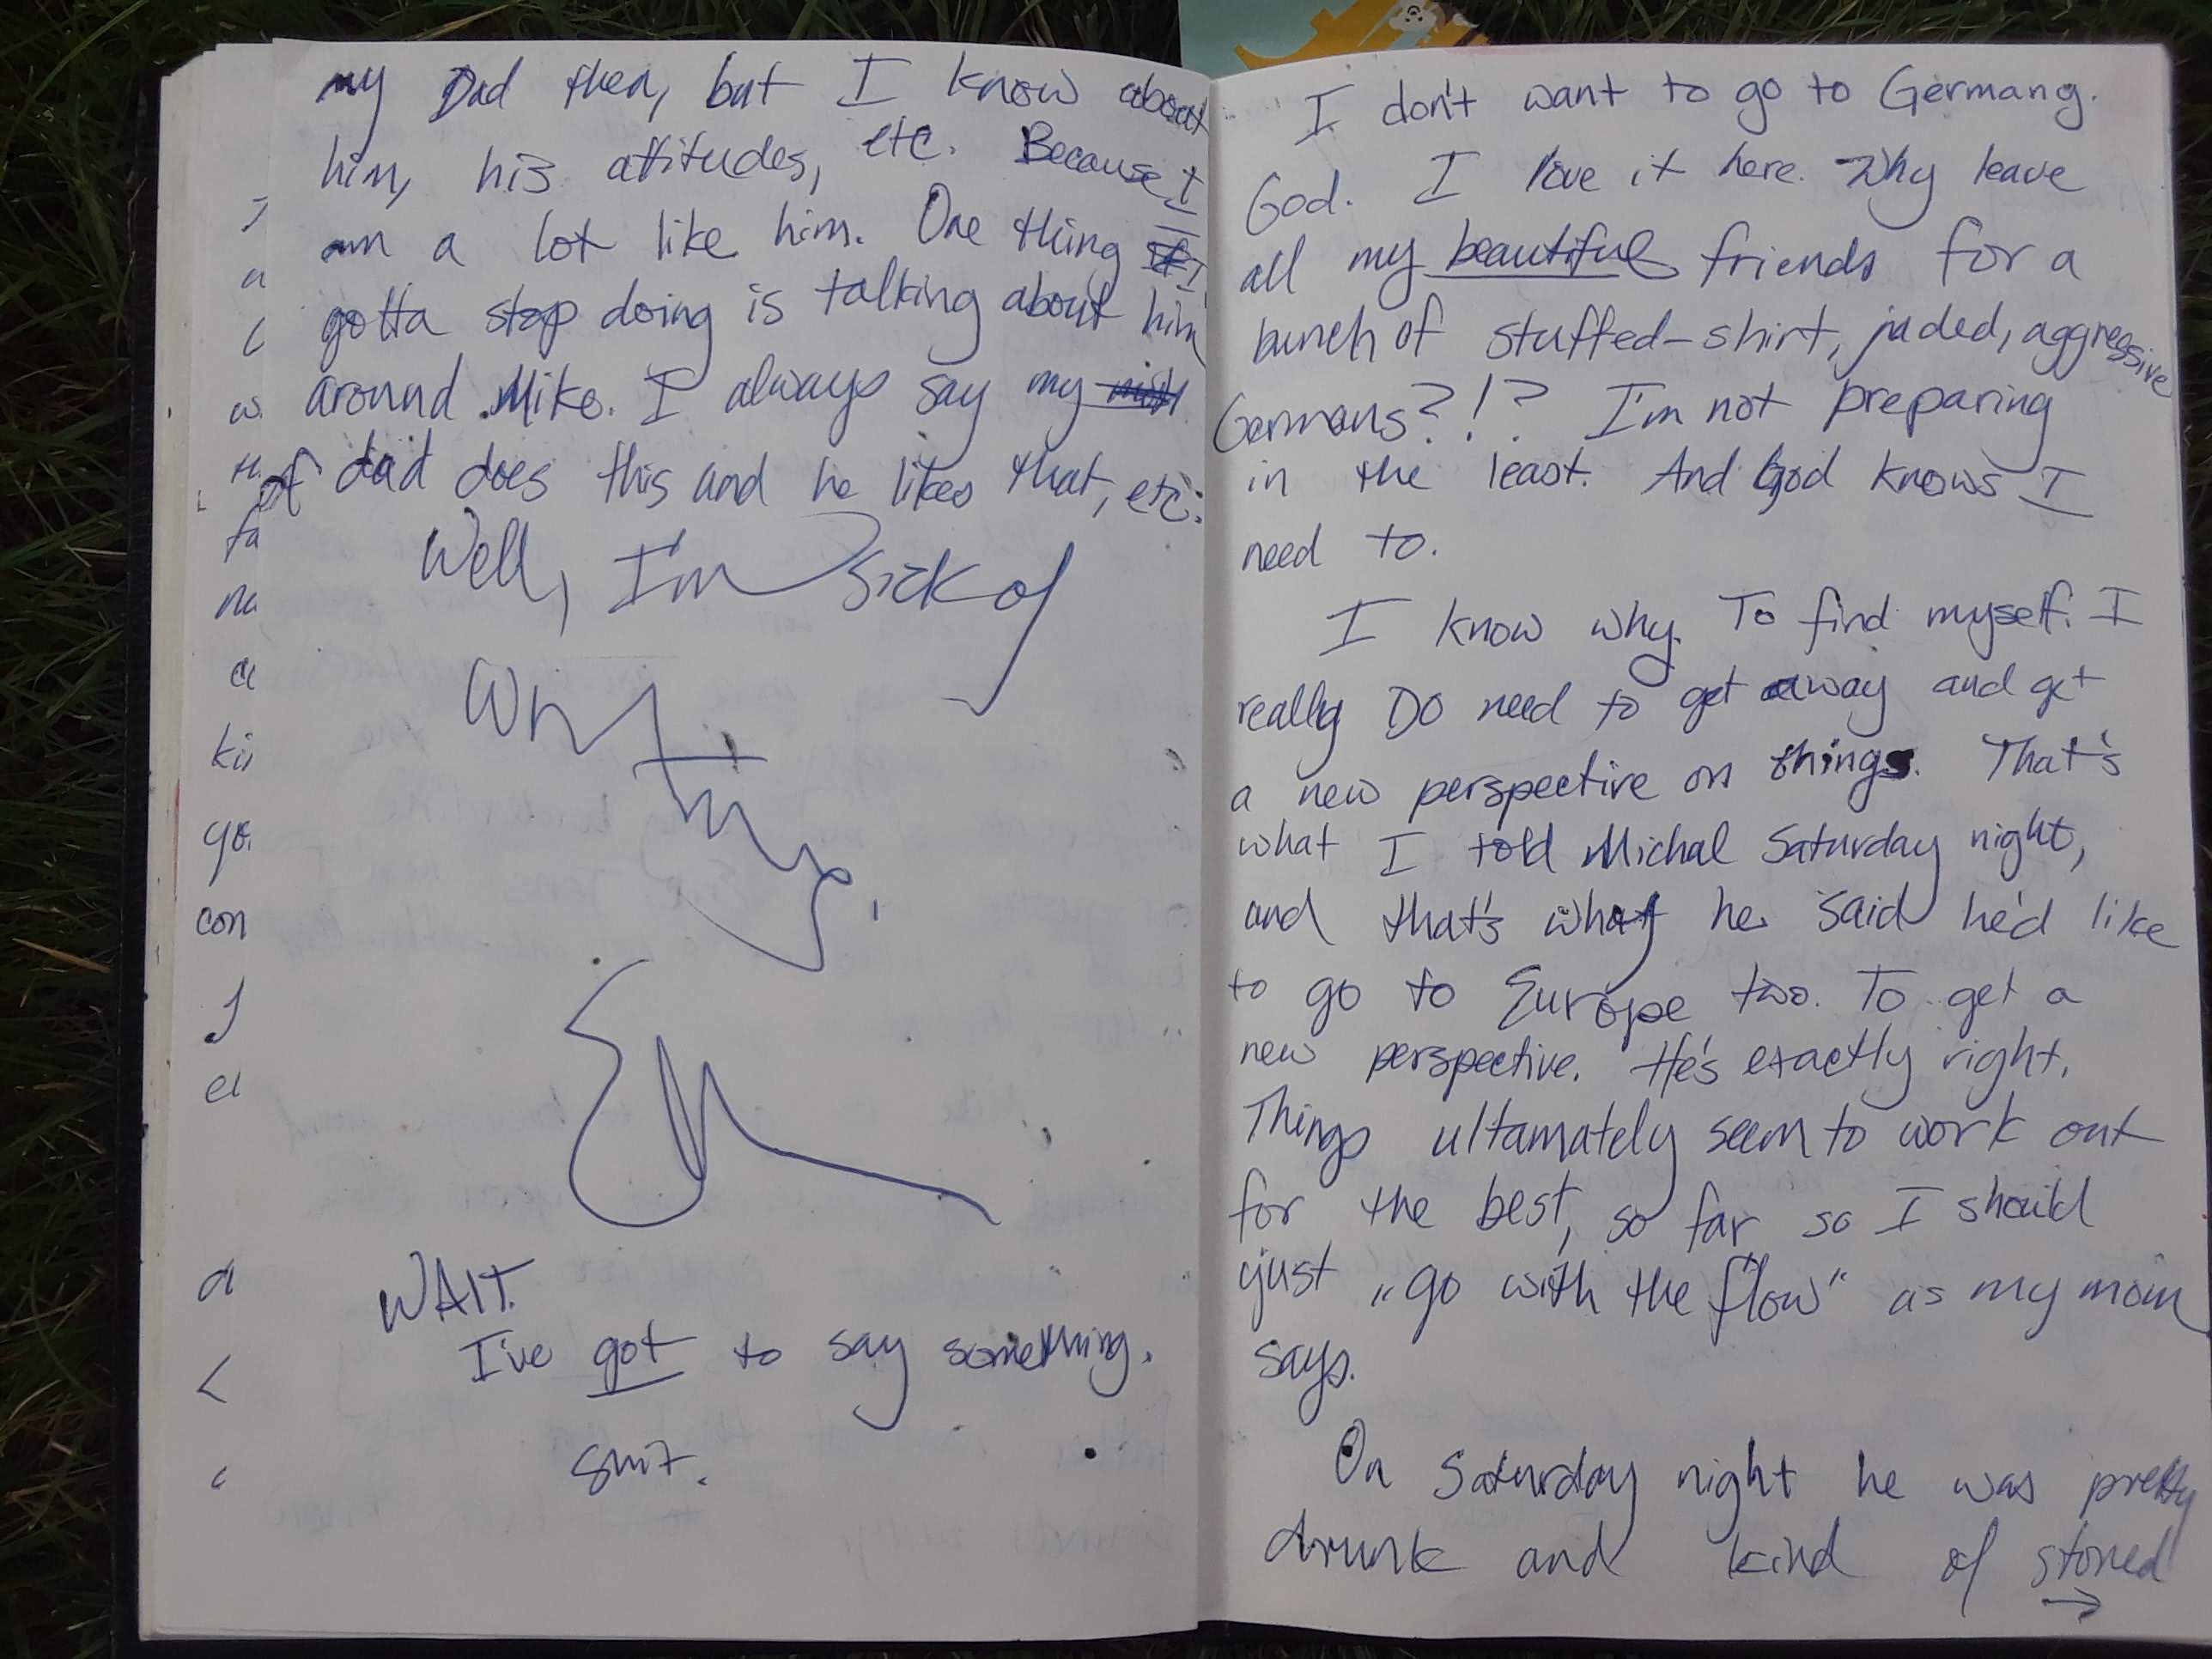 my Dad then, but I know about
him, his attitudes, etc. Because I
am a lot like him. One thing I
gotta stop doing is talking about him
around Mike. I always say my
of dad does this and he likes that, etc.
Well, I'm sick of
Writing.
WAIT.
I've got to say something.
I don't want to go to Germany.
God. I love it here. Why leave
all my beautiful friends for a
bunch of stuffed-shirt, jaded, aggressive
Germans?!? I'm not preparing
in the least. And God knows I
need to.
I know why. To find myself. I
really DO need to get away and get
a new perspective on things. That's
what I told Michal Saturday night,
and that's what he said he'd like
to go to Europe two. To get a
new perspective. He's exactly right.
Things ultamately seem to work out
for the best, so far so I should
just „go with the flow" as my mom
says.
On Saturday night he was pretty
drunk and kind of stoned
→